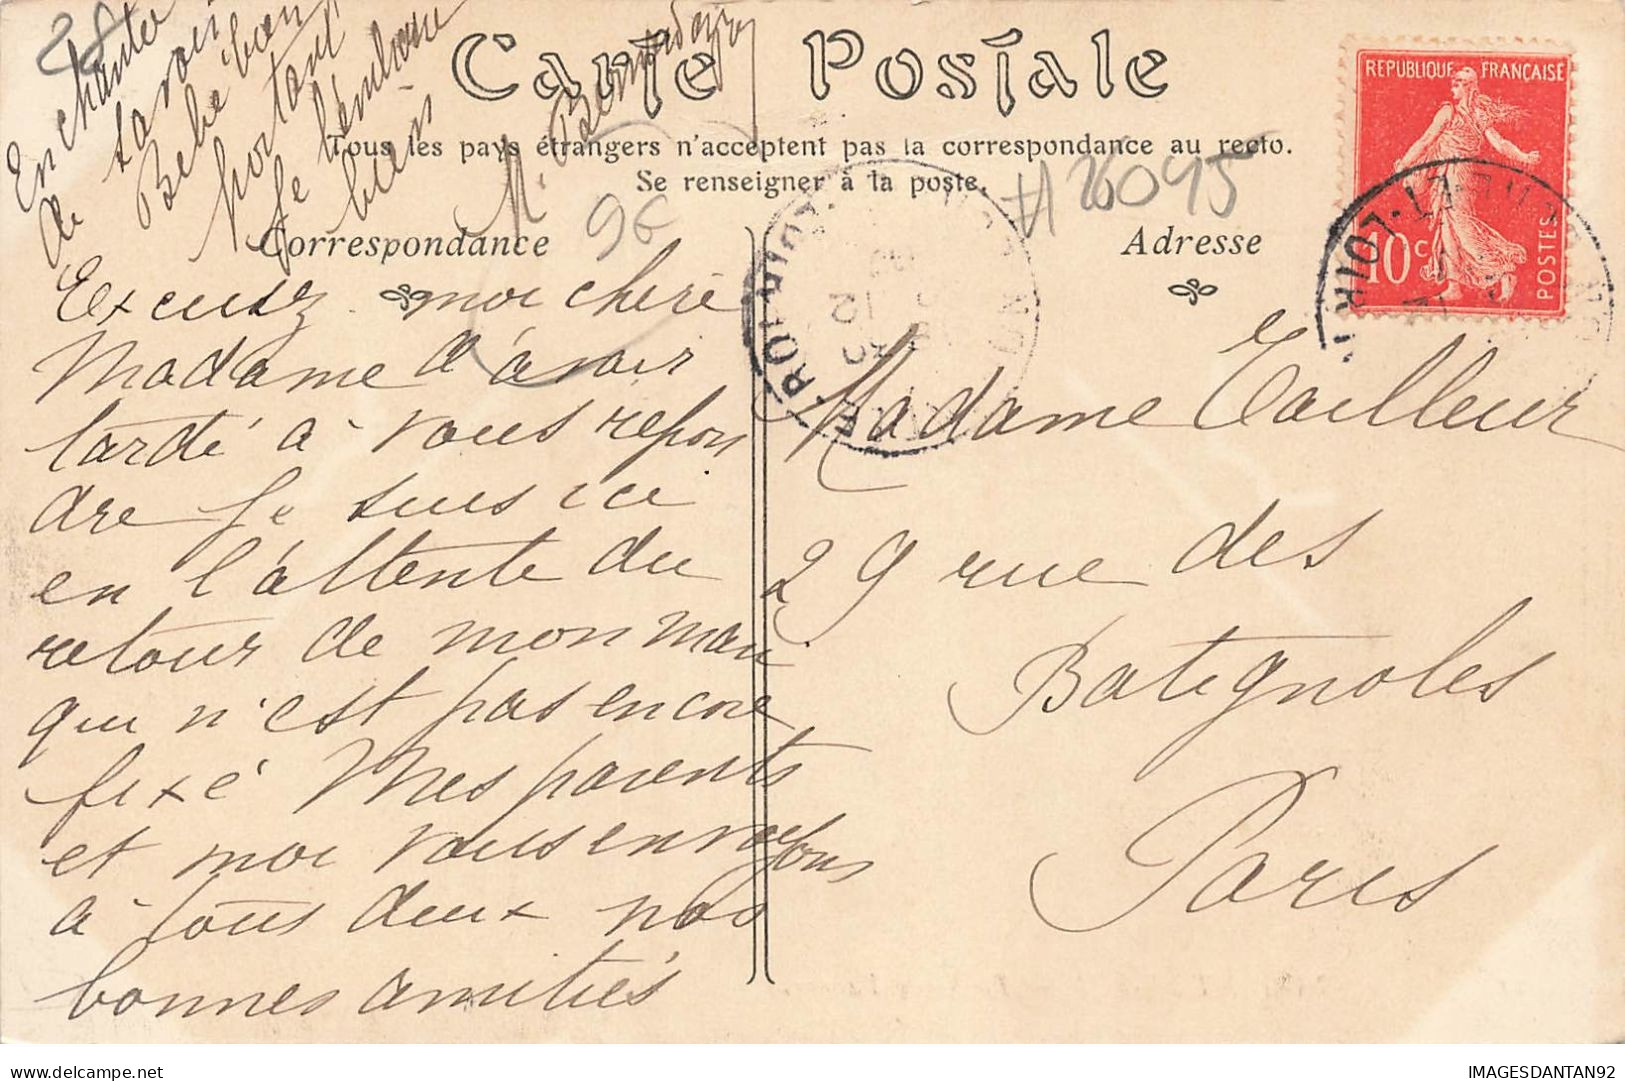 Carte Postale
Tous les pays étrangers n'acceptent pas la correspondance au recto.
Se renseigner à la poste.
Correspondance
Adresse
28
96
#26095
REPUBLIQUE FRANÇAISE
10c
POSTES
Excusez moi chère
Madame d'avoir
tardé à vous repon
dre Je suis ici
en l'attente du
retour de mon mari
qui n'est pas encore
fixé Mes parents
et moi vous envoyons
à tous deux nos
bonnes amitiés
Enchantée
de savoir
Bébé bien
portant
Je l'embrasse
bien
Madame Tailleur
29 rue des
Batignoles
Paris
IMAGESDANTAN92